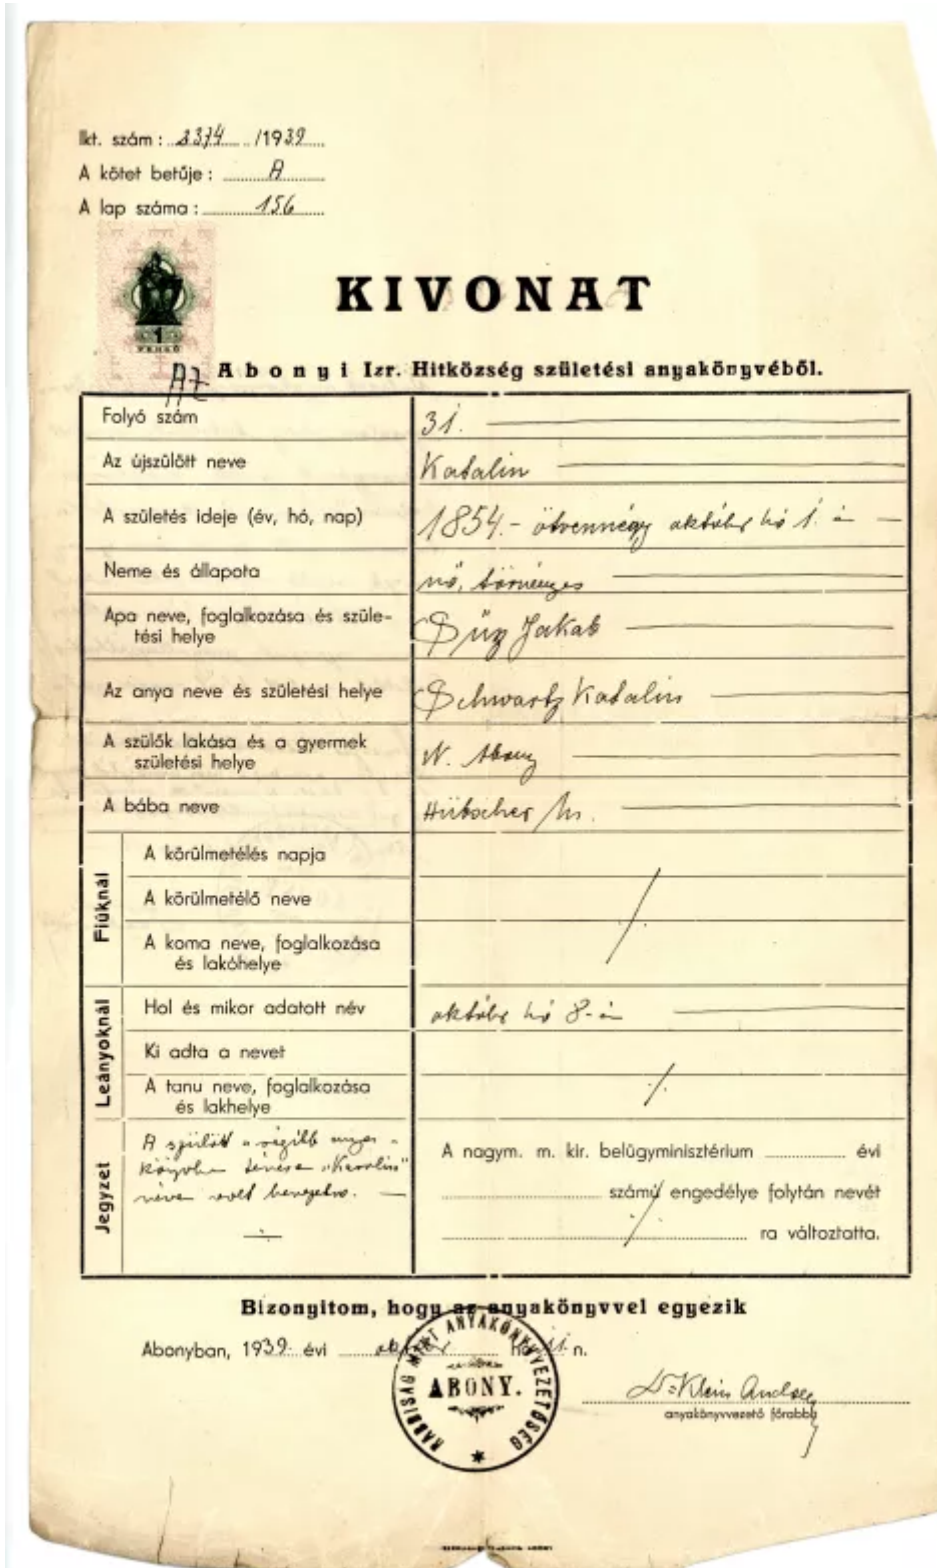 Ikt. szám: 3374 /1939
A kötet betűje: A
A lap száma: 156
1
PENGŐ
KIVONAT
Az Abonyi Izr. Hitközség születési anyakönyvéből.
Folyó szám 31.
Az újszülött neve Katalin
A születés ideje (év, hó, nap) 1854.- ötvennégy október hó 1.-én
Neme és állapota nő, törvényes
Apa neve, foglalkozása és szüle-
tési helye Jakab
Az anya neve és születési helye Schwartz Katalin
A szülők lakása és a gyermek
születési helye N. Abony
A bába neve M.
Fiúknál
A körülmetélés napja
A körülmetélő neve
A koma neve, foglalkozása
és lakóhelye
Leányoknál
Hol és mikor adatott név október hó 8-án
Ki adta a nevet
A tanu neve, foglalkozása
és lakhelye
Jegyzet
A szülött a régibb anya-
könyvben "Karolin"
néven volt bevezetve.
A nagym. m. kir. belügyminisztérium évi
számú engedélye folytán nevét
ra változtatta.
Bizonyitom, hogy az anyakönyvvel egyezik
Abonyban, 1939. évi október hó 11. n.
RABBISÁG MINT ANYAKÖNYVVEZETŐSÉG
ABONY.
Dr Klein
anyakönyvvezető főrabbi